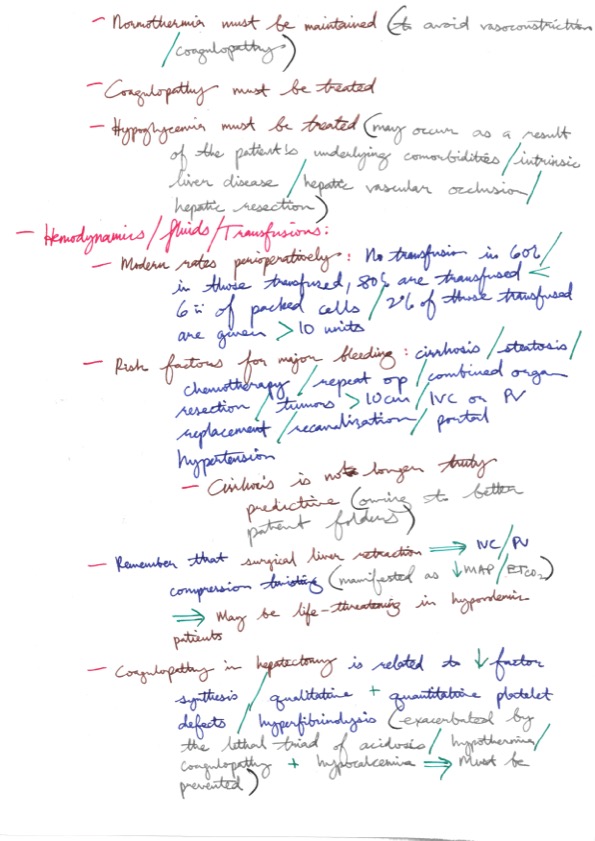 — Normothermia must be maintained (to avoid vasoconstriction
/coagulopathy)
— Coagulopathy must be treated
— Hypoglycemia must be treated (may occur as a result
of the patient's underlying comorbidities / intrinsic
liver disease / hepatic vascular occlusion /
hepatic resection)
— Hemodynamics / fluids / Transfusions:
— Modern rates perioperatively: No transfusion in 60% /
in those transfused, 80% are transfused <
6 ü of packed cells / 2% of those transfused
are given > 10 units
— Risk factors for major bleeding: cirrhosis / steatosis /
chemotherapy / repeat op / combined organ
resection / tumors > 10cm / IVC or PV
replacement / recanalization / portal
hypertension
— Cirrhosis is not longer truly
predictive (owing to better
patient folders)
— Remember that surgical liver retraction ⇒ IVC / PV
compression twisting (manifested as ↓ MAP / ETCO2)
⇒ May be life-threatening in hypovolemic
patients
— Coagulopathy in hepatectomy is related to ↓ factor
synthesis / qualitative + quantitative platelet
defects / hyperfibrinolysis (-exacerbated by
the lethal triad of acidosis / hypothermia /
coagulopathy + hypocalcemia ⇒ Must be
prevented)